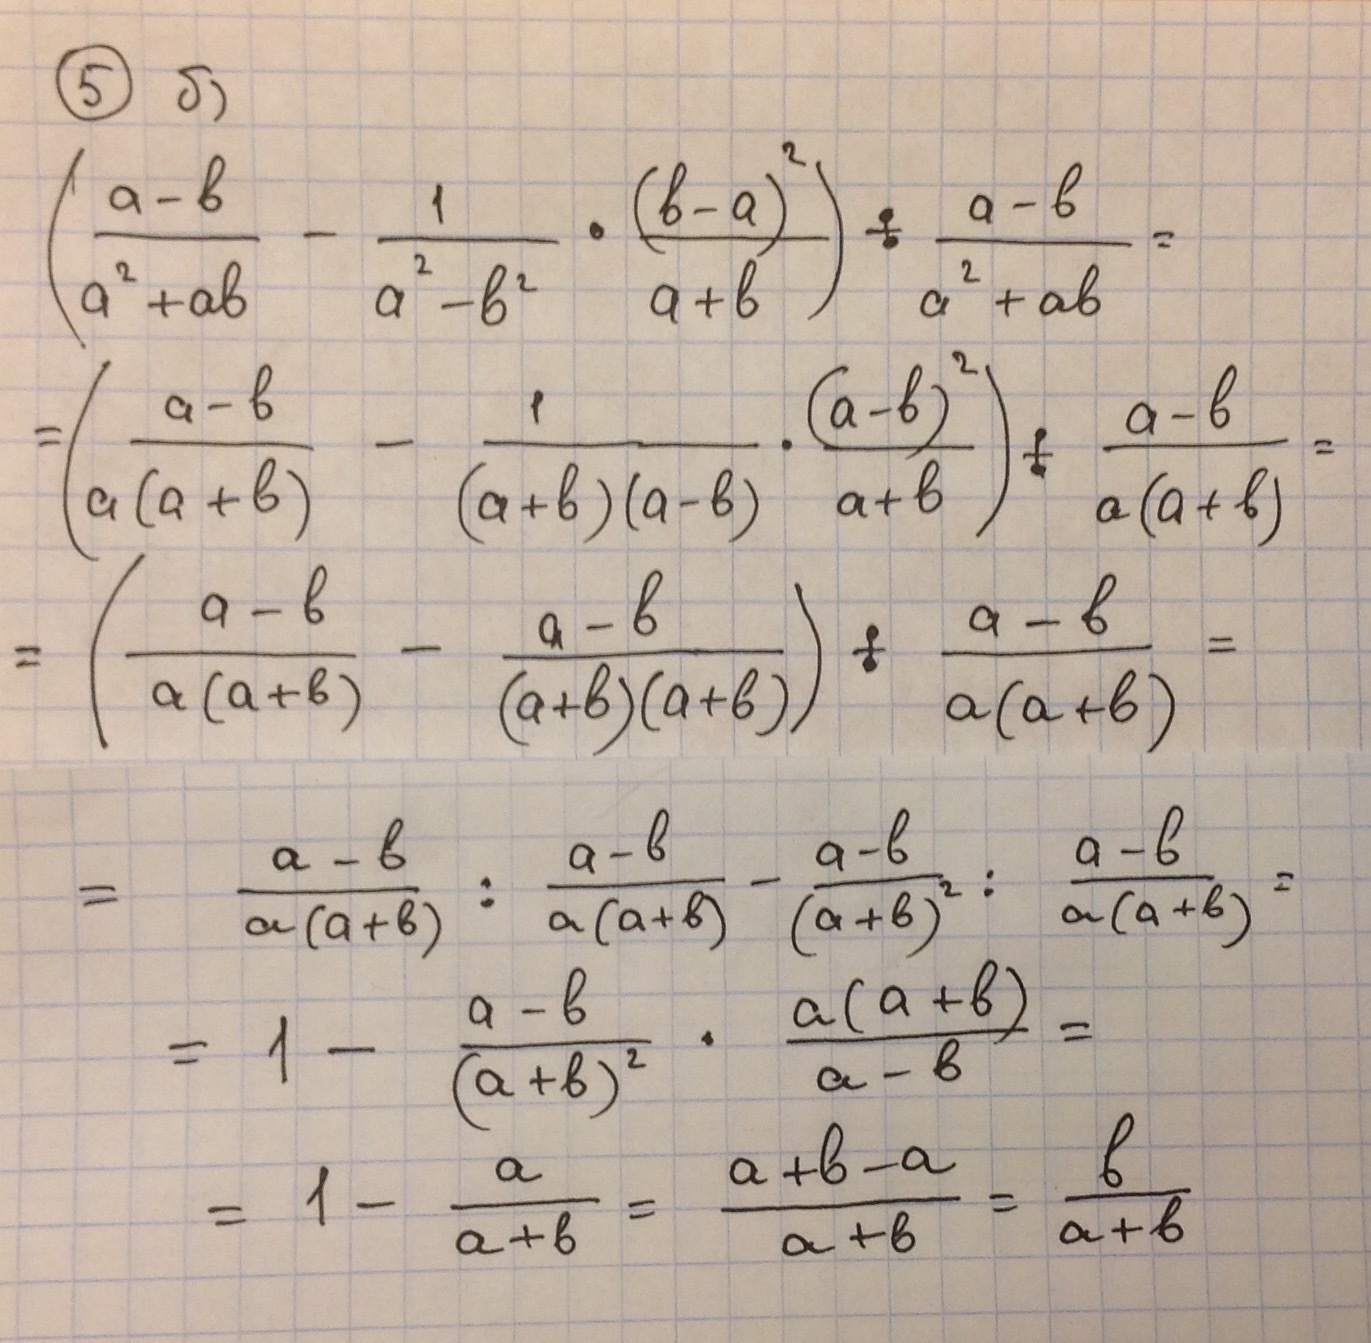 5 б)
( (a-b)/(a²+ab) - 1/(a²-b²) · (b-a)²/(a+b) ) ÷ (a-b)/(a²+ab) =
= ( (a-b)/(a(a+b)) - 1/((a+b)(a-b)) · (a-b)²/(a+b) ) ÷ (a-b)/(a(a+b)) =
= ( (a-b)/(a(a+b)) - (a-b)/((a+b)(a+b)) ) ÷ (a-b)/(a(a+b)) =
= (a-b)/(a(a+b)) : (a-b)/(a(a+b)) - (a-b)/(a+b)² : (a-b)/(a(a+b)) =
= 1 - (a-b)/(a+b)² · a(a+b)/(a-b) =
= 1 - a/(a+b) = (a+b-a)/(a+b) = b/(a+b)